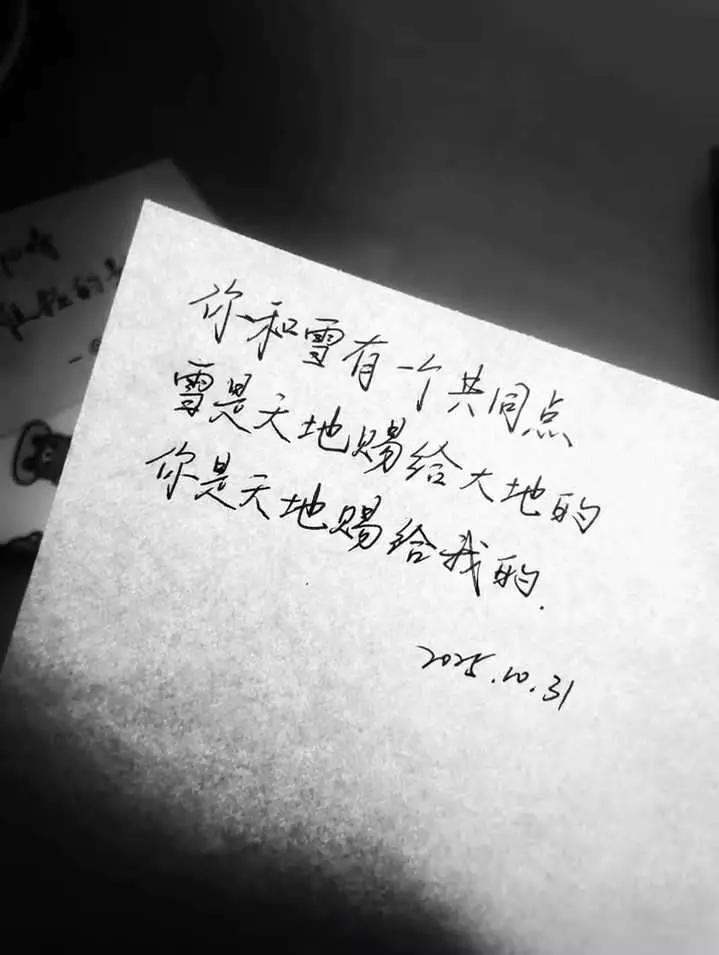 你和雪有一个共同点
雪是天地赐给大地的
你是天地赐给我的.
2025.10.31